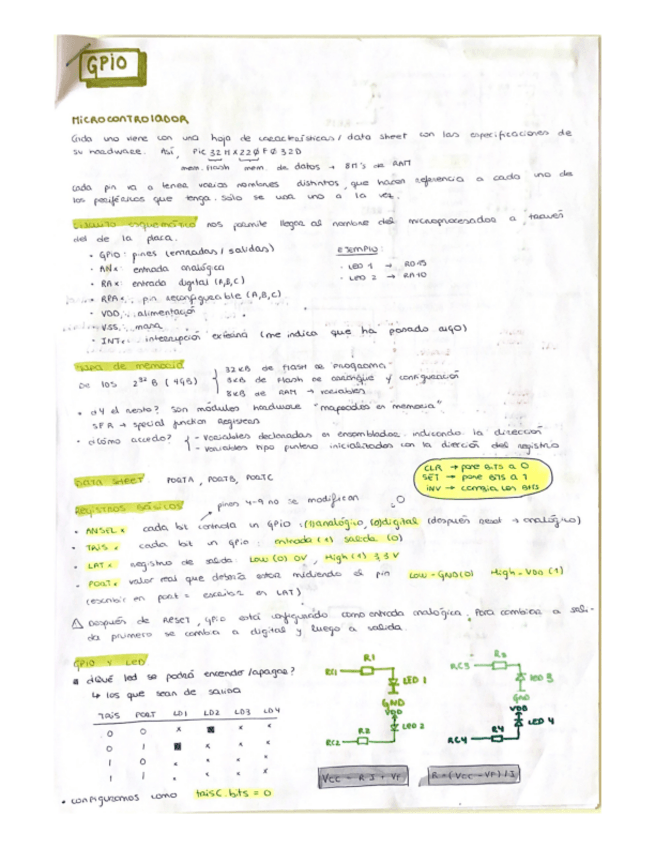 GPIO
MICROCONTROLADOR
Cada uno viene con una hoja de características / data sheet con las especificaciones de
su hardware. Así, PIC 32MX220F032D
mem. flash mem. de datos → 8M's de RAM
cada pin va a tener varios nombres distintos, que hacen referencia a cada uno de
los periféricos que tenga. Solo se usa uno a la vez.
Circuito esquemático nos permite llegar al nombre del microprocesador a través
del de la placa.
• GPIO: pines (entradas / salidas)
ejemplo:
• ANx: entrada analógica
· LED 1 →
• RAx: entrada digital (A,B,C)
· LED 2 → RA10
• RPAx: pin reconfigurable (A,B,C)
• VDD: alimentación
• VSS: masa
• INTx: interrupción externa (me indica que ha pasado algo)
de memoria
De los 2³² B (4GB)
32KB de Flash de "programa"
3KB de Flash de arranque y configuración
8KB de RAM → variables
• ¿Y el resto? Son módules hardware "mapeados en memoria"
SFR → special function registers
• ¿Cómo accedo?
- Variables declaradas en ensamblador indicando la dirección
- Variables tipo puntero inicializados con la dirección del registro
Data sheet PORTA, PORTB, PORTC
CLR → pone bits a 0
SET → pone bits a 1
INV → cambia los bits
Registros básicos
pines 4-9 no se modifican
• ANSELx cada bit controla un GPIO: (1) analógico, (0) digital (después reset → analógico)
• TRISx cada bit un GPIO: entrada (1) salida (0)
• LATx registro de salida: Low (0) 0V, High (1) 3,3V
• PORTx valor real que debería estar midiendo el pin Low-GND(0) High-VDD (1)
(escribir en port = escribir en LAT)
⚠ Después de RESET, GPIO está configurado como entrada analógica. Para cambiar a sali-
da primero se cambia a digital y luego a salida.
GPIO y LED
¿Qué led se podrá encender/apagar?
↳ los que sean de salida
TRIS PORT LD1 LD2 LD3 LD4
0 0 x x x
0 1 x x x
1 0 x x x x
1 1 x x x x
• configuramos como TRISC.bits = 0
R1
RC1
LED 1
GND
VDD
R2
LED 2
RC2
RC3
LED 3
GND
VDD
LED 4
R4
RC4
VCC = R·I + VF
R = (VCC - VF) / I